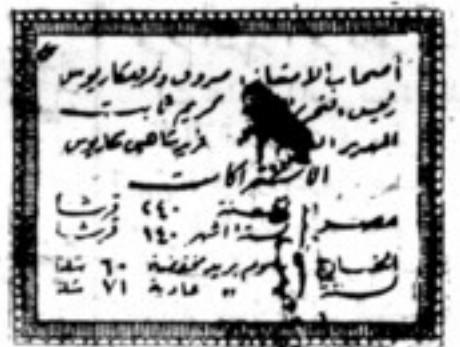 أصحاب الامتياز: صروف ونمر ومكاريوس
رئيس التحرير كريم ثابت
المدير
الاشتراكات
مصر سنة ٢٤٠ قرشا
ستة اشهر ١٤٠ قرشا
الخارج رسوم بريد مخفضة ٦٠ شلنا
سنة » عادية ٧١ شلنا